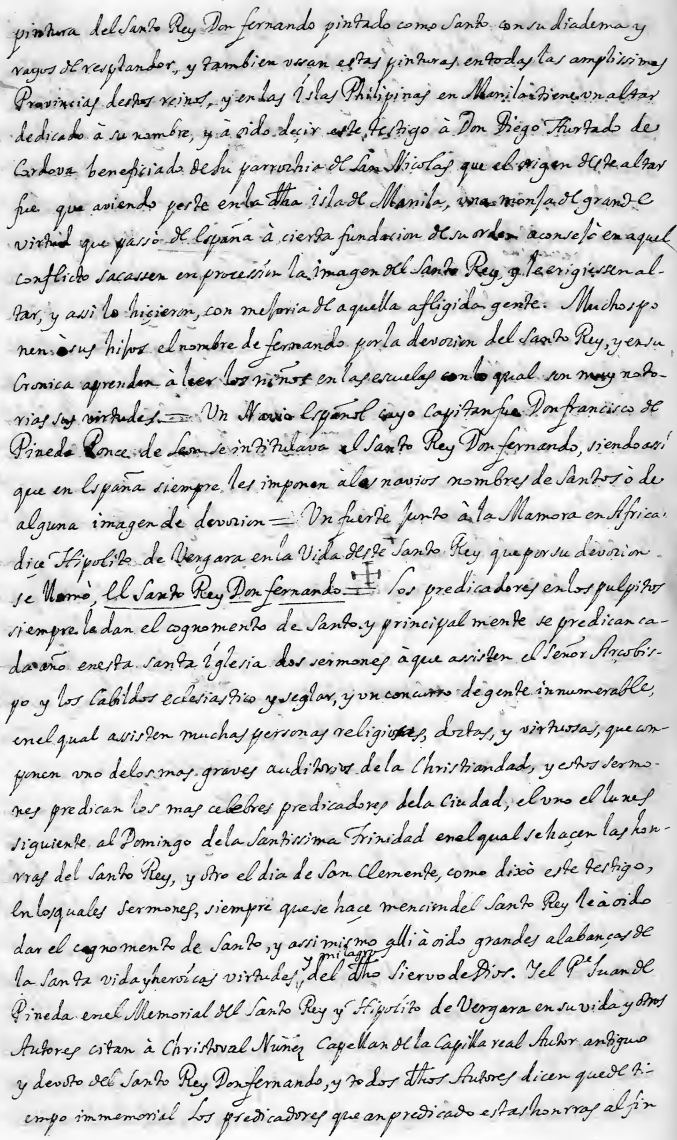 pintura del Santo Rey Don fernando pintado como Santo con su diadema y
rayos de resplandor, y tambien usan estas pinturas en todas las amplissimas
Provincias destos reinos, y en las Islas Philipinas en Manila tiene un altar
dedicado à su nombre, y à oido deçir este testigo à Don Diego Hurtado de
Cordova beneficiado de su parrochia de San Nicolas que el origen deste altar
fue que aviendo peste en la dha isla de Manila, una monja de grande
virtud que passò de España à cierta fundacion de su orden aconsejò en aquel
conflicto sacassen en procession la imagen del Santo Rey, y le erigiessen al-
tar, y assi lo hiçieron, con mejoria de aquella afligida gente. Muchos po
nen à sus hijos el nombre de fernando por la devozion del Santo Rey, y en su
Cronica aprenden à leer los niños en las escuelas con lo qual son muy noto-
rias sus virtudes = Un Navio Español cuyo Capitan fue Don francisco de
Pineda Ponce de Leon se intitulava el Santo Rey Don fernando, siendo assi
que en España siempre les imponen à los navios nombres de Santos ò de
alguna imagen de devozion = Un fuerte junto à la Mamora en Africa
dice Hipolito de Vergara en la Vida deste Santo Rey que por su devozion
se llamò, El Santo Rey Don fernando = Los predicadores en los pulpitos
siempre le dan el cognomento de Santo y principalmente se predican ca-
da año en esta santa iglesia dos sermones à que assisten el Señor Arçobis-
po y los Cabildos eclesiastico y seglar, y un concurso de gente innumerable,
en el qual assisten muchas personas religiosas, doctas, y virtuosas, que con-
ponen uno de los mas graves auditorios de la Christiandad, y estos sermo-
nes predican los mas celebres predicadores de la Ciudad, el uno el lunes
siguiente al Domingo de la Santissima Trinidad en el qual se haçen las hon-
rras del Santo Rey, y otro el dia de San Clemente, como dixò este testigo,
En los quales sermones, siempre que se hace mencion del Santo Rey le à oido
dar el cognomento de Santo, y assimismo alli à oido grandes alabanças de
la Santa vida y heroicas virtudes y milagros del dho Siervo de Dios. Y el Pe Juan de
Pineda en el Memorial del Santo Rey y Hipolito de Vergara en su vida y otros
Autores citan à Christoval Nuñez Capellan de la Capilla real Autor antiguo
y devoto del Santo Rey Don fernando, y todos dhos Autores dicen que de ti-
empo immemorial los predicadores que an predicado estas honrras al fin